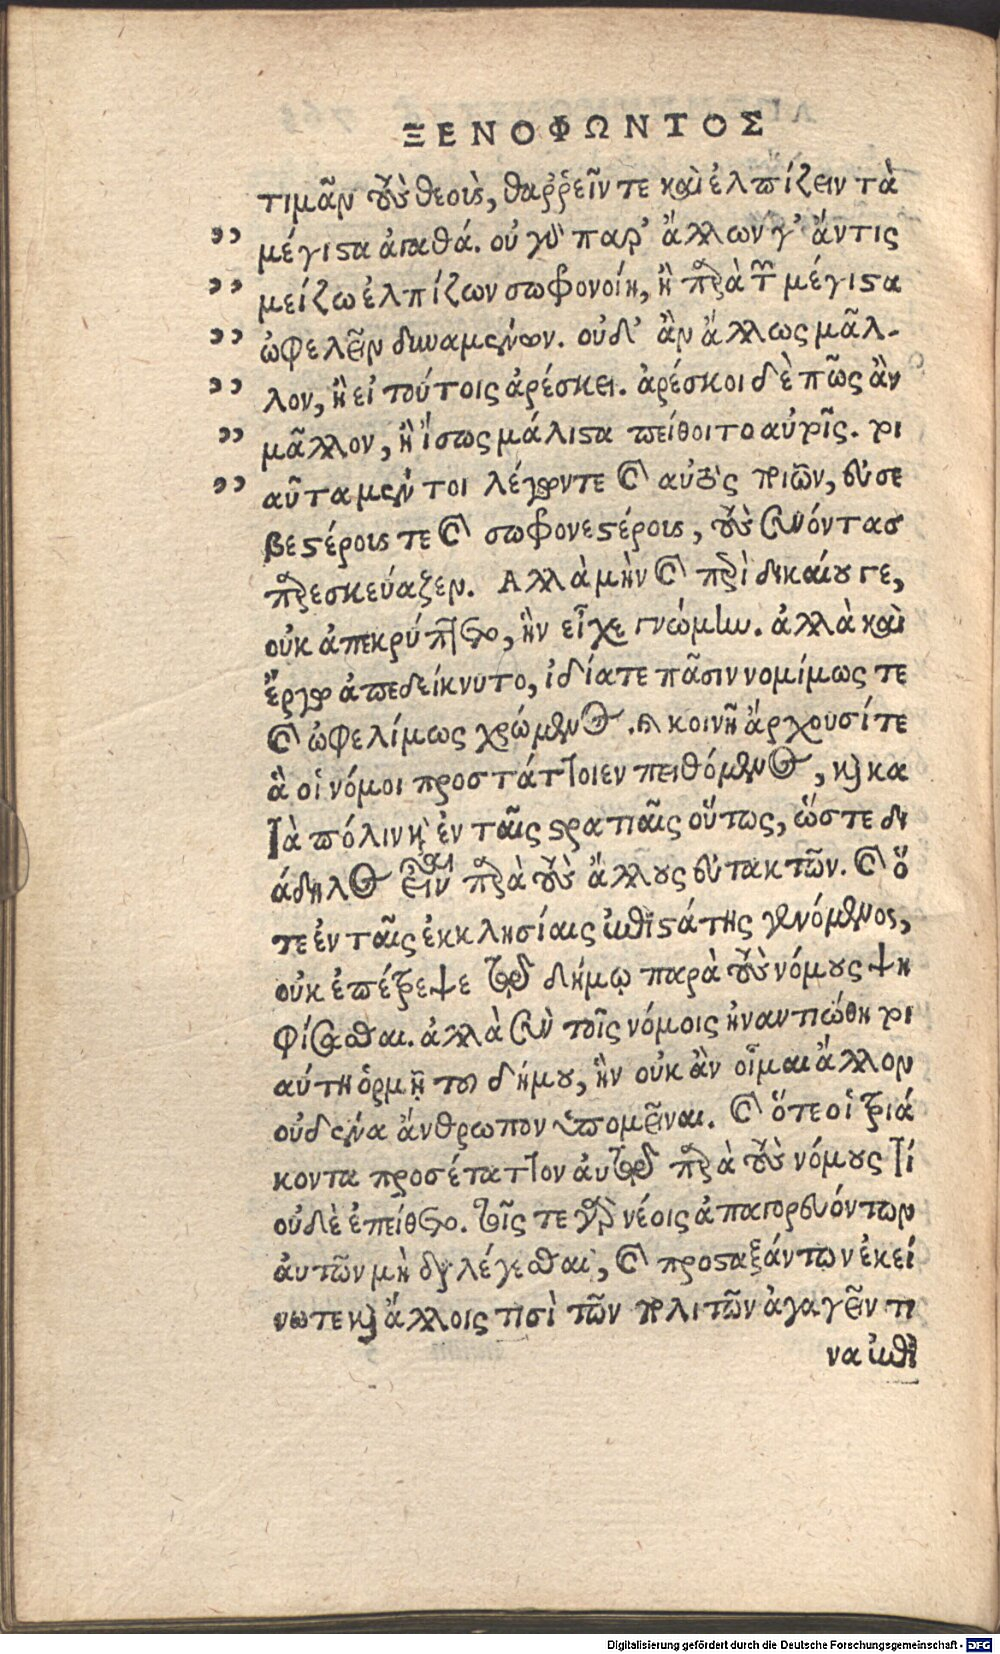 ΞΕΝΟΦΩΝΤΟΣ
τιμᾶν τοὺς θεοὺς, θαῤῥεῖν τε καὶ ἐλπίζειν τὰ
,, μέγιστα ἀγαθά. οὐ γὰρ παρ' ἄλλων γ' ἄν τις
,, μείζω ἐλπίζων σωφρονοίη, ἢ παρὰ τῶν μέγιστα
,, ὠφελεῖν δυναμένων. οὐδ' ἂν ἄλλως μᾶλ-
,, λον, ἢ εἰ τούτοις ἀρέσκει. ἀρέσκοι δὲ πῶς ἂν
,, μᾶλλον, ἢ ἴσως μάλιστα πείθοιτο αὐτοῖς. τοι
,, αῦτα μέν τοι λέγων τε καὶ αὐτὸς ποιῶν, εὐσε
βεστέρους τε καὶ σωφρονεστέρους, τοὺς συνόντας
παρεσκεύαζεν. Αλλὰ μὴν καὶ περὶ δικαίου γε,
οὐκ ἀπεκρύπτετο, ἣν εἶχε γνώμην. ἀλλὰ καὶ
ἔργῳ ἀπεδείκνυτο, ἰδίᾳ τε πᾶσιν νομίμως τε
καὶ ὠφελίμως χρώμενος. καὶ κοινῇ ἄρχουσί τε
ἃ οἱ νόμοι προστάττοιεν πειθόμενος, καὶ κα
τὰ πόλιν καὶ ἐν ταῖς στρατιαῖς οὕτως, ὥστε δι
άδηλος εἶναι παρὰ τοὺς ἄλλους εὐτακτῶν. καὶ ὅ
τε ἐν ταῖς ἐκκλησίαις ἐπιστάτης γενόμενος,
οὐκ ἐπέτρεψε τῷ δήμῳ παρὰ τοὺς νόμους ψη
φίσασθαι. ἀλλὰ σὺν τοῖς νόμοις ἠναντιώθη τοι
αύτῃ ὁρμῇ τοῦ δήμου, ἣν οὐκ ἂν οἶμαι ἄλλον
οὐδένα ἄνθρωπον ὑπομεῖναι. καὶ ὅτε οἱ τριά
κοντα προσέταττον αὐτῷ παρὰ τοὺς νόμους τί
οὐδὲ ἐπείθετο. τοῖς τε γὰρ νέοις ἀπαγορευόντων
αὐτῶν μὴ διαλέγεσθαι, καὶ προσταξάντων ἐκεί
νῳ τε καὶ ἄλλοις τισὶ τῶν πολιτῶν ἀγαγεῖν τι
να ἐπὶ
Digitalisierung gefördert durch die Deutsche Forschungsgemeinschaft - DFG